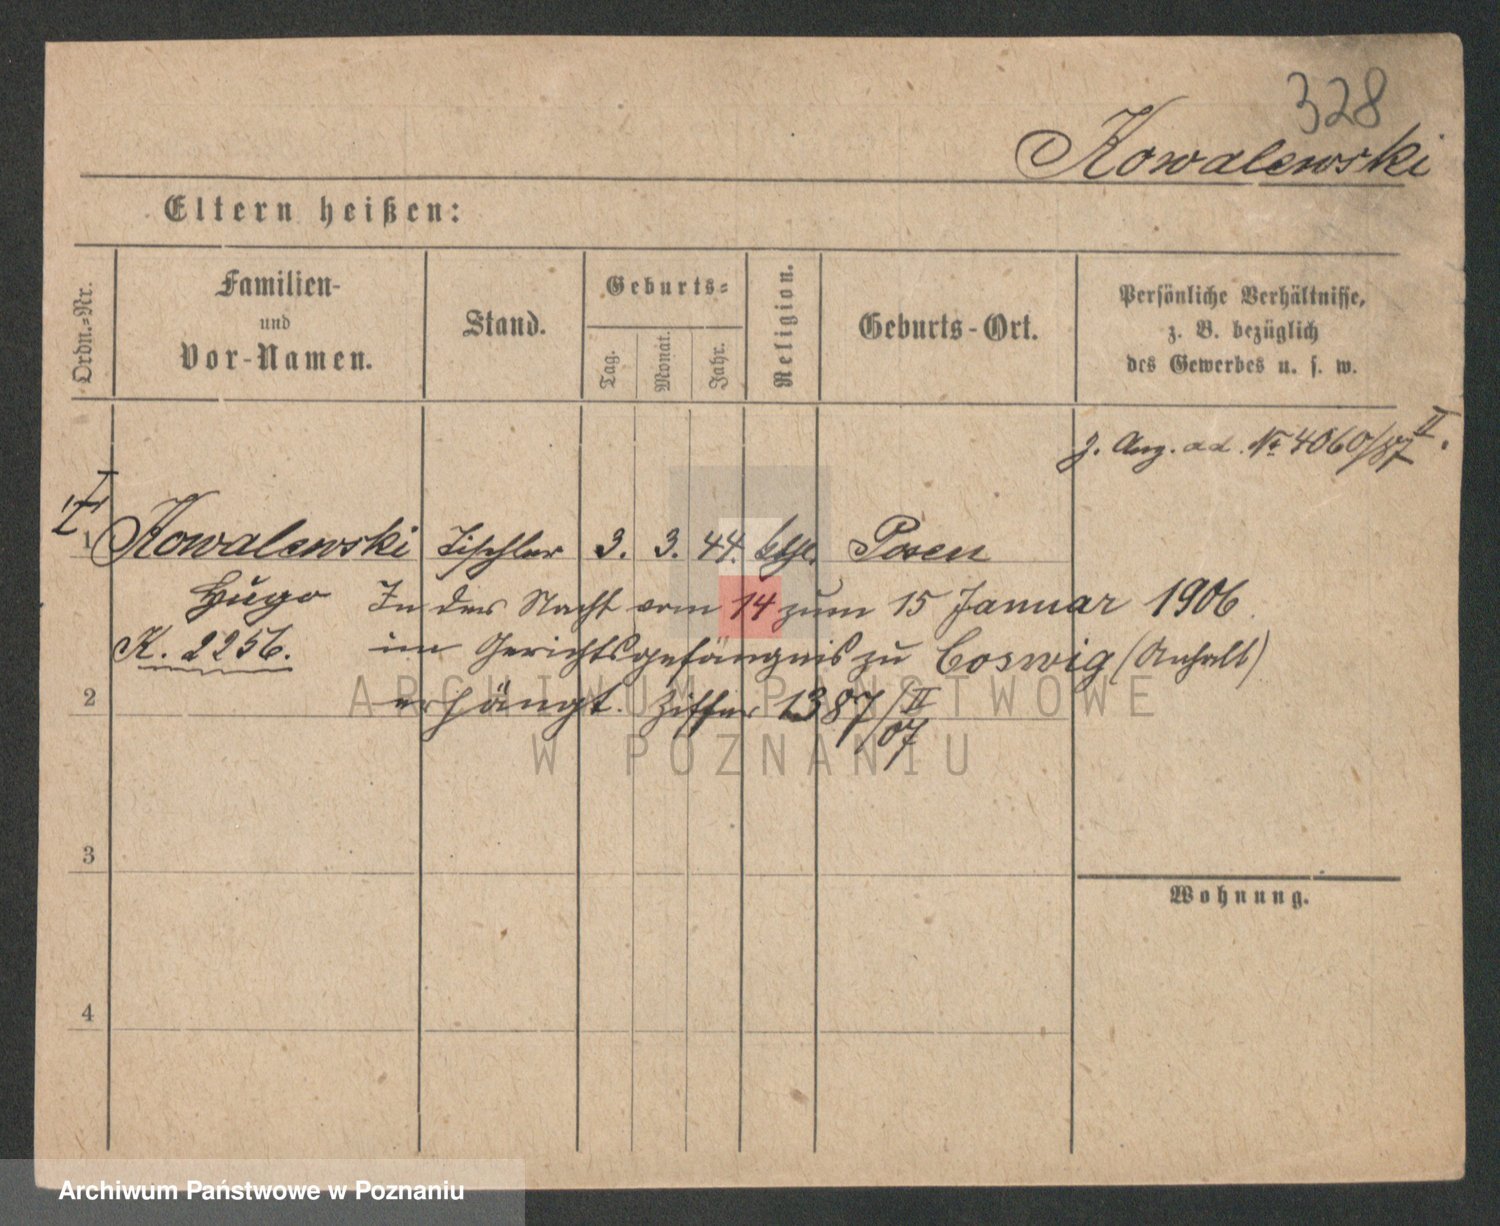 328
Kowalewski
Eltern heißen:
Ordn.-Nr.
Familien-
und
Vor-Namen.
Stand.
Geburts-
Tag.
Monat.
Jahr.
Religion.
Geburts-Ort.
Persönliche Verhältnisse,
z. B. bezüglich
des Gewerbes u. s. w.
z. Ang. ad. No 4060/87 II.
1 Kowalewski Tischler 3. 3. 44. Posen
Hugo In der Nacht vom 14 zum 15 Januar 1906
K. 2256. im Gerichtsgefängnis zu Coswig (Anhalt)
2 erhängt. Ziffer 1387/II 07
3
Wohnung.
4
ARCHIWUM PAŃSTWOWE
W POZNANIU
Archiwum Państwowe w Poznaniu